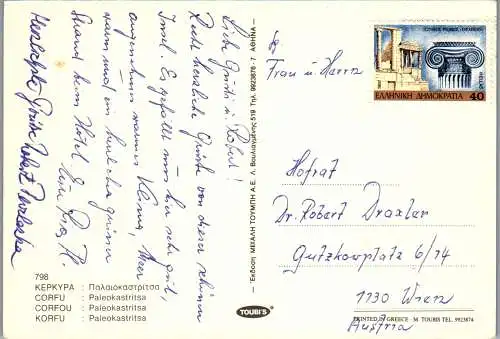 Liebe Gusti u. Robert!
Recht herzliche Grüße von dieser schönen
Insel. Es gefällt mir hier sehr gut,
angenehmes warmes Klima, Meer
warm und ein herrlicher grüner
Strand beim Hotel
Herzlichste Grüße
798
ΚΕΡΚΥΡΑ : Παλαιοκαστρίτσα
CORFU : Paleokastritsa
CORFOU : Paleokastritsa
KORFU : Paleokastritsa
Έκδοση ΜΙΧΑΛΗ ΤΟΥΜΠΗ Α.Ε. Λ. Βουλιαγμένης 519 Τηλ. 9923876 - 7 ΑΘΗΝΑ
TOUBI'S
ΕΛΛΗΝΙΚΗ ΔΗΜΟΚΡΑΤΙΑ 40
HELLAS
Frau u. Herrn
Hofrat
Dr. Robert Draxler
Gutzkowplatz 6/14
1130 Wien
Austria
PRINTED IN GREECE - M TOUBIS TEL. 9923874